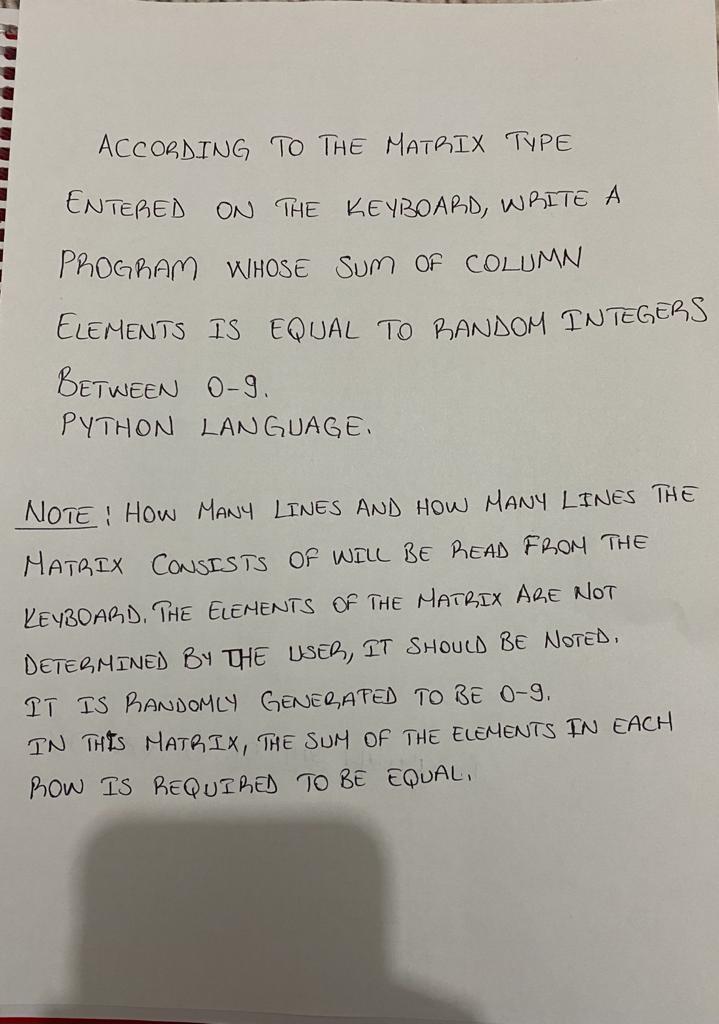 ACCORDING TO THE MATRIX TYPE
ENTERED ON THE KEYBOARD, WRITE A
PROGRAM WHOSE SUM OF COLUMN
ELEMENTS IS EQUAL TO RANDOM INTEGERS
BETWEEN 0-9.
PYTHON LANGUAGE.
NOTE: HOW MANY LINES AND HOW MANY LINES THE
MATRIX CONSISTS OF WILL BE READ FROM THE
KEYBOARD. THE ELEMENTS OF THE MATRIX ARE NOT
DETERMINED BY THE USER, IT SHOULD BE NOTED.
IT IS RANDOMLY GENERATED TO BE 0-9.
IN THIS MATRIX, THE SUM OF THE ELEMENTS IN EACH
ROW IS REQUIRED TO BE EQUAL.